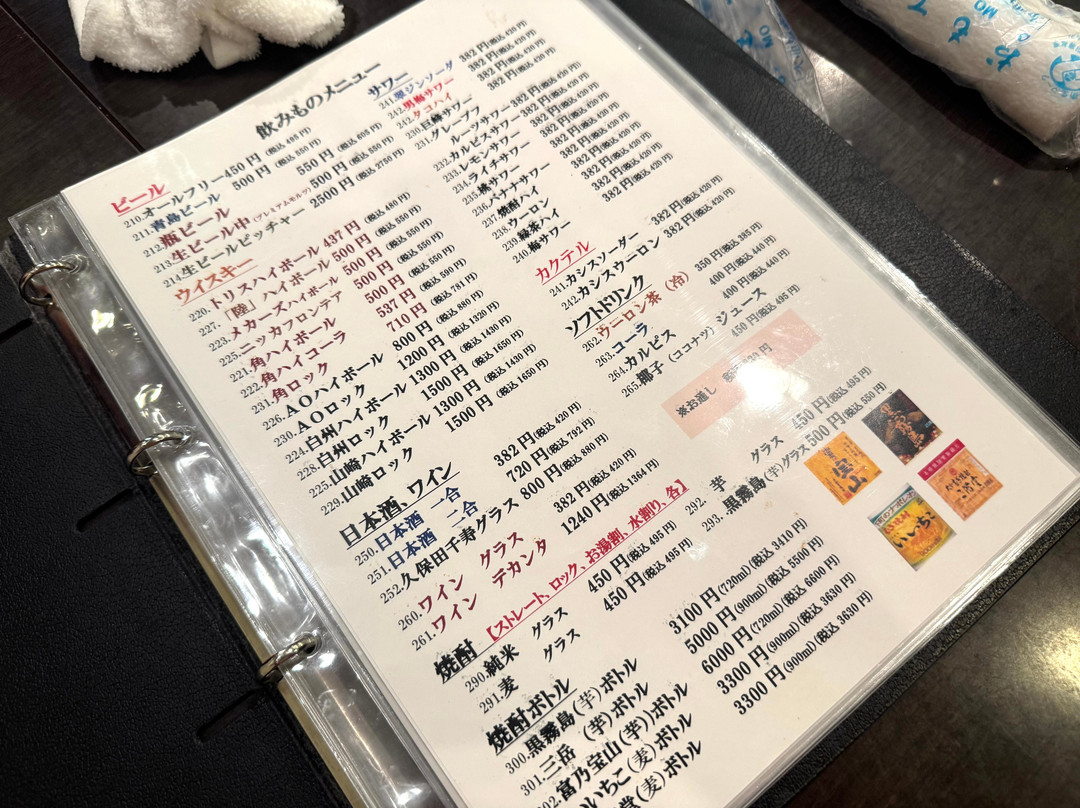 飲みものメニュー
ビール
210.オールフリー450円(税込 495円)
211.青島ビール 500円(税込 550円)
212.瓶ビール 550円(税込 605円)
213.生ビール中(プレミアムモルツ)500円(税込 550円)
214.生ビールピッチャー 2500円(税込 2750円)
ウイスキー
220.トリスハイボール 437円(税込 480円)
227.「陸」ハイボール 500円(税込 550円)
223.メカーズハイボール 500円(税込 550円)
225.ニッカフロンテア 500円(税込 550円)
221.角ハイボール 537円(税込 590円)
222.角ハイコーラ 710円(税込 781円)
231.角ロック 800円(税込 880円)
226.AOハイボール 1200円(税込 1320円)
230.AOロック 1300円(税込 1430円)
224.白州ハイボール 1500円(税込 1650円)
228.白州ロック 1300円(税込 1430円)
225.山崎ハイボール 1500円(税込 1650円)
229.山崎ロック
日本酒、ワイン
250.日本酒 一合 382円(税込 420円)
251.日本酒 二合 720円(税込 792円)
252.久保田千寿グラス 800円(税込 880円)
260.ワイン グラス 382円(税込 420円)
261.ワイン デカンタ 1240円(税込 1364円)
焼酎 【ストレート、ロック、お湯割、水割り、各】
290.純米 グラス 450円(税込 495円)
291.麦 グラス 450円(税込 495円)
292.芋 グラス 450円(税込 495円)
293.黒霧島(芋)グラス 500円(税込 550円)
焼酎ボトル
300.黒霧島(芋)ボトル 3100円(720ml)(税込 3410円)
301.三岳 (芋)ボトル 5000円(900ml)(税込 5500円)
302.富乃宝山(芋))ボトル 6000円(720ml)(税込 6600円)
いいちこ(麦)ボトル 3300円(900ml)(税込 3630円)
(麦)ボトル 3300円(900ml)(税込 3630円)
サワー
241.翠ジンソーダ 382円(税込 420円)
242.男梅サワー 382円(税込 420円)
242.タコハイ 382円(税込 420円)
230.巨峰サワー 382円(税込 420円)
231.グレープフルーツサワー 382円(税込 420円)
232.カルピスサワー 382円(税込 420円)
233.レモンサワー 382円(税込 420円)
234.ライチサワー 382円(税込 420円)
235.桃サワー 382円(税込 420円)
236.バナナサワー 382円(税込 420円)
237.焼酎ハイ 382円(税込 420円)
238.ウーロン
239.緑茶ハイ
240.梅サワー
カクテル
241.カシスソーダー 382円(税込 420円)
242.カシスウーロン 382円(税込 420円)
ソフトドリンク
262.ウーロン茶(冷) 350円(税込 385円)
263.コーラ 400円(税込 440円)
264.カルピス 400円(税込 440円)
265.椰子(ココナツ)ジュース 450円(税込 495円)
※お通し
いいちこ